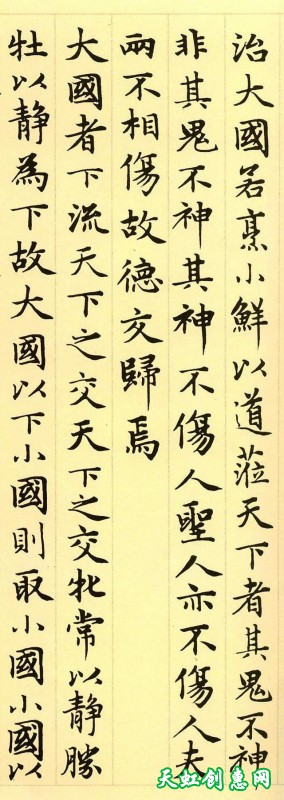 治大國若烹小鮮以道蒞天下者其鬼不神
非其鬼不神其神不傷人聖人亦不傷人夫
兩不相傷故德交歸焉
大國者下流天下之交天下之交牝常以靜勝
牡以靜為下故大國以下小國則取小國小國以
天虹创意网